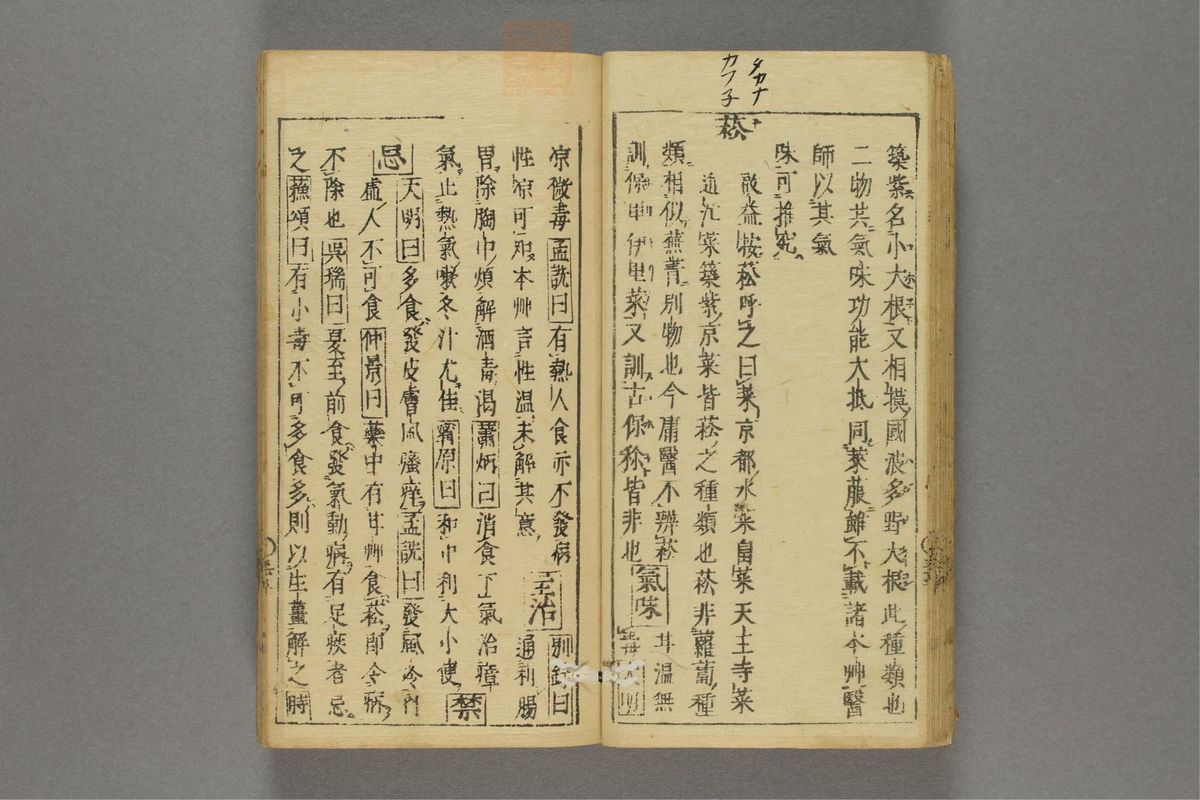 築紫名小大根又相摸國波多野大根此種類也
二物共氣味功能大抵同萊菔雖不載諸本艸醫
師以其氣
味可推究
タカナ
カフ子
菘
敬益按菘呼之曰菜京都水菜畠菜天王寺菜
近江菜築紫京菜皆菘之種類也菘非蘿蔔種
類相似蕪菁別物也今庸醫不辨菘
訓保里菜又訓古保祢皆非也
氣味
甘温無
毒
凉微毒孟詵曰有熱人食亦不發病
性凉可本艸言性温未解其意
主治
別録曰
通利腸
胃除胸中煩解酒毒渇蕭炳曰消食下氣治瘴
氣止熱氣嗽冬汁尤佳甯原曰和中利大小便
禁
忌
大明曰多食發皮膚風瘙痒孟詵曰發風冷内
虚人不可食仲景曰藥中有甘艸食菘即令病
不除也呉瑞曰夏至前食發氣動病有足疾者忌
之蘓頌曰有小毒不可多食多則以生薑解之時